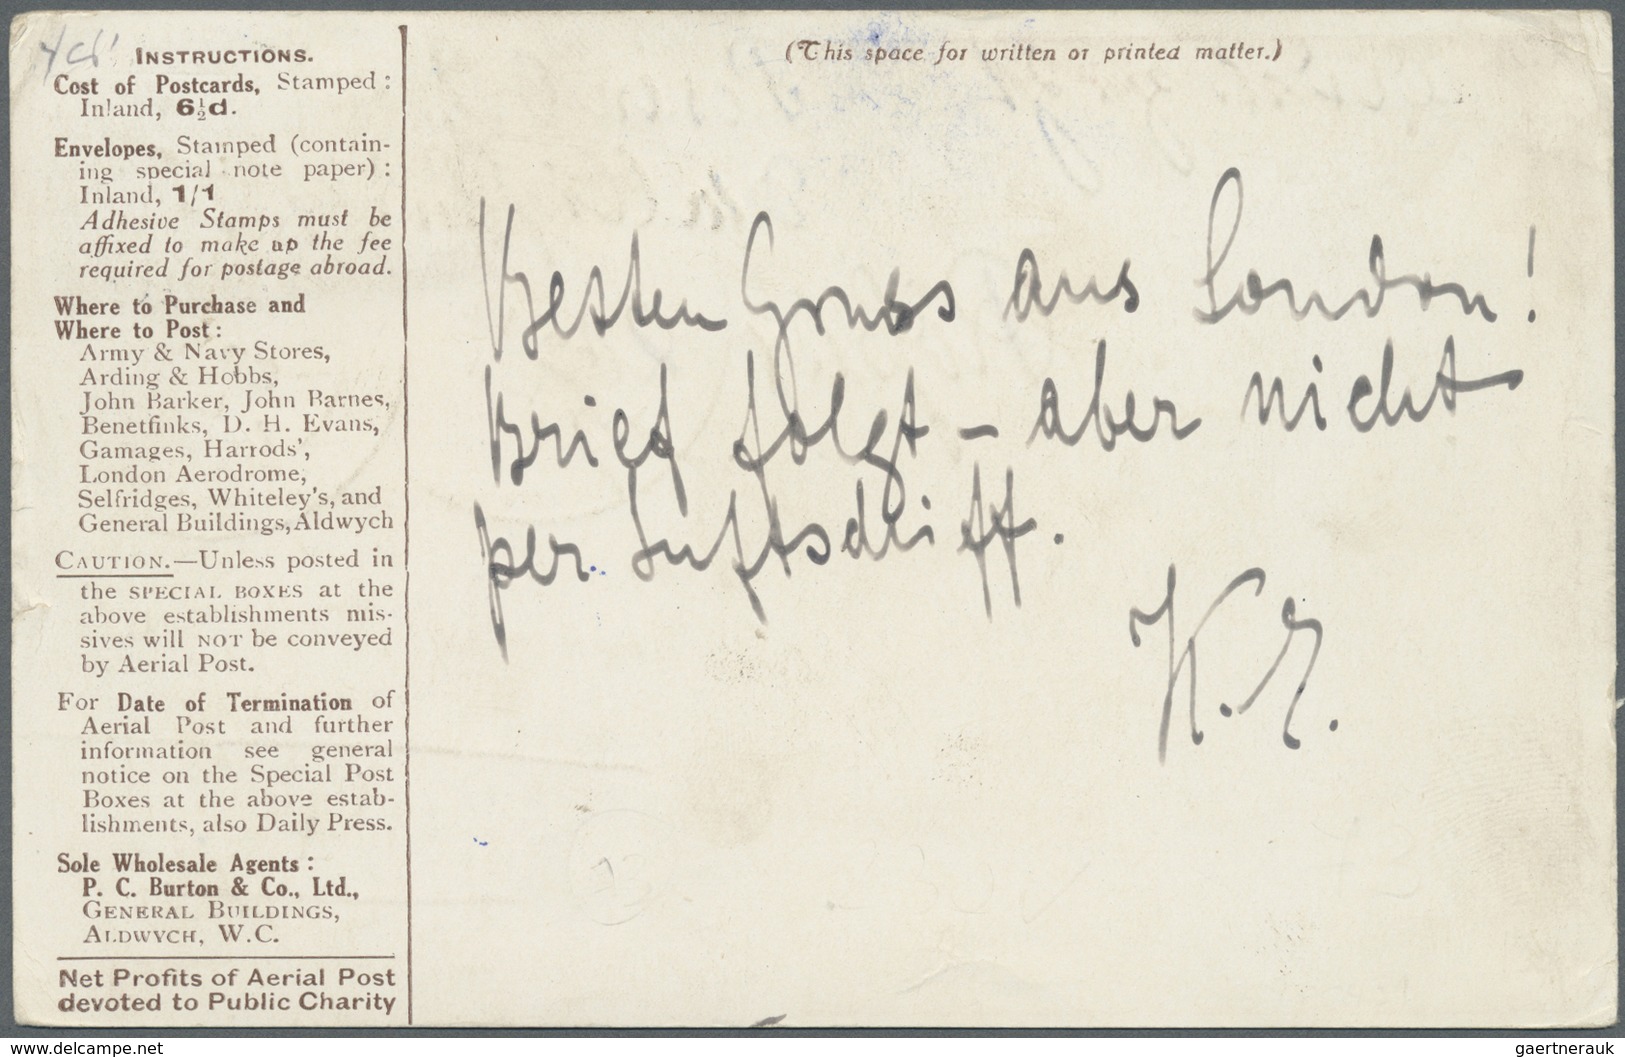 INSTRUCTIONS.
Cost of Postcards, Stamped :
Inland, 6½d.
Envelopes, Stamped (contain-
ing special note paper) :
Inland, 1/1
Adhesive Stamps must be
affixed to make up the fee
required for postage abroad.
Where to Purchase and
Where to Post :
Army & Navy Stores,
Arding & Hobbs,
John Barker, John Barnes,
Benetfinks, D. H. Evans,
Gamages, Harrods',
London Aerodrome,
Selfridges, Whiteley's, and
General Buildings, Aldwych
CAUTION.—Unless posted in
the SPECIAL BOXES at the
above establishments mis-
sives will NOT be conveyed
by Aerial Post.
For Date of Termination of
Aerial Post and further
information see general
notice on the Special Post
Boxes at the above estab-
lishments, also Daily Press.
Sole Wholesale Agents :
P. C. Burton & Co., Ltd.,
GENERAL BUILDINGS,
ALDWYCH, W.C.
Net Profits of Aerial Post
devoted to Public Charity
(This space for written or printed matter.)
Besten Gruss aus London!
Brief folgt - aber nicht
per Luftschiff.
K.
www.delcampe.net
gaertnerauk